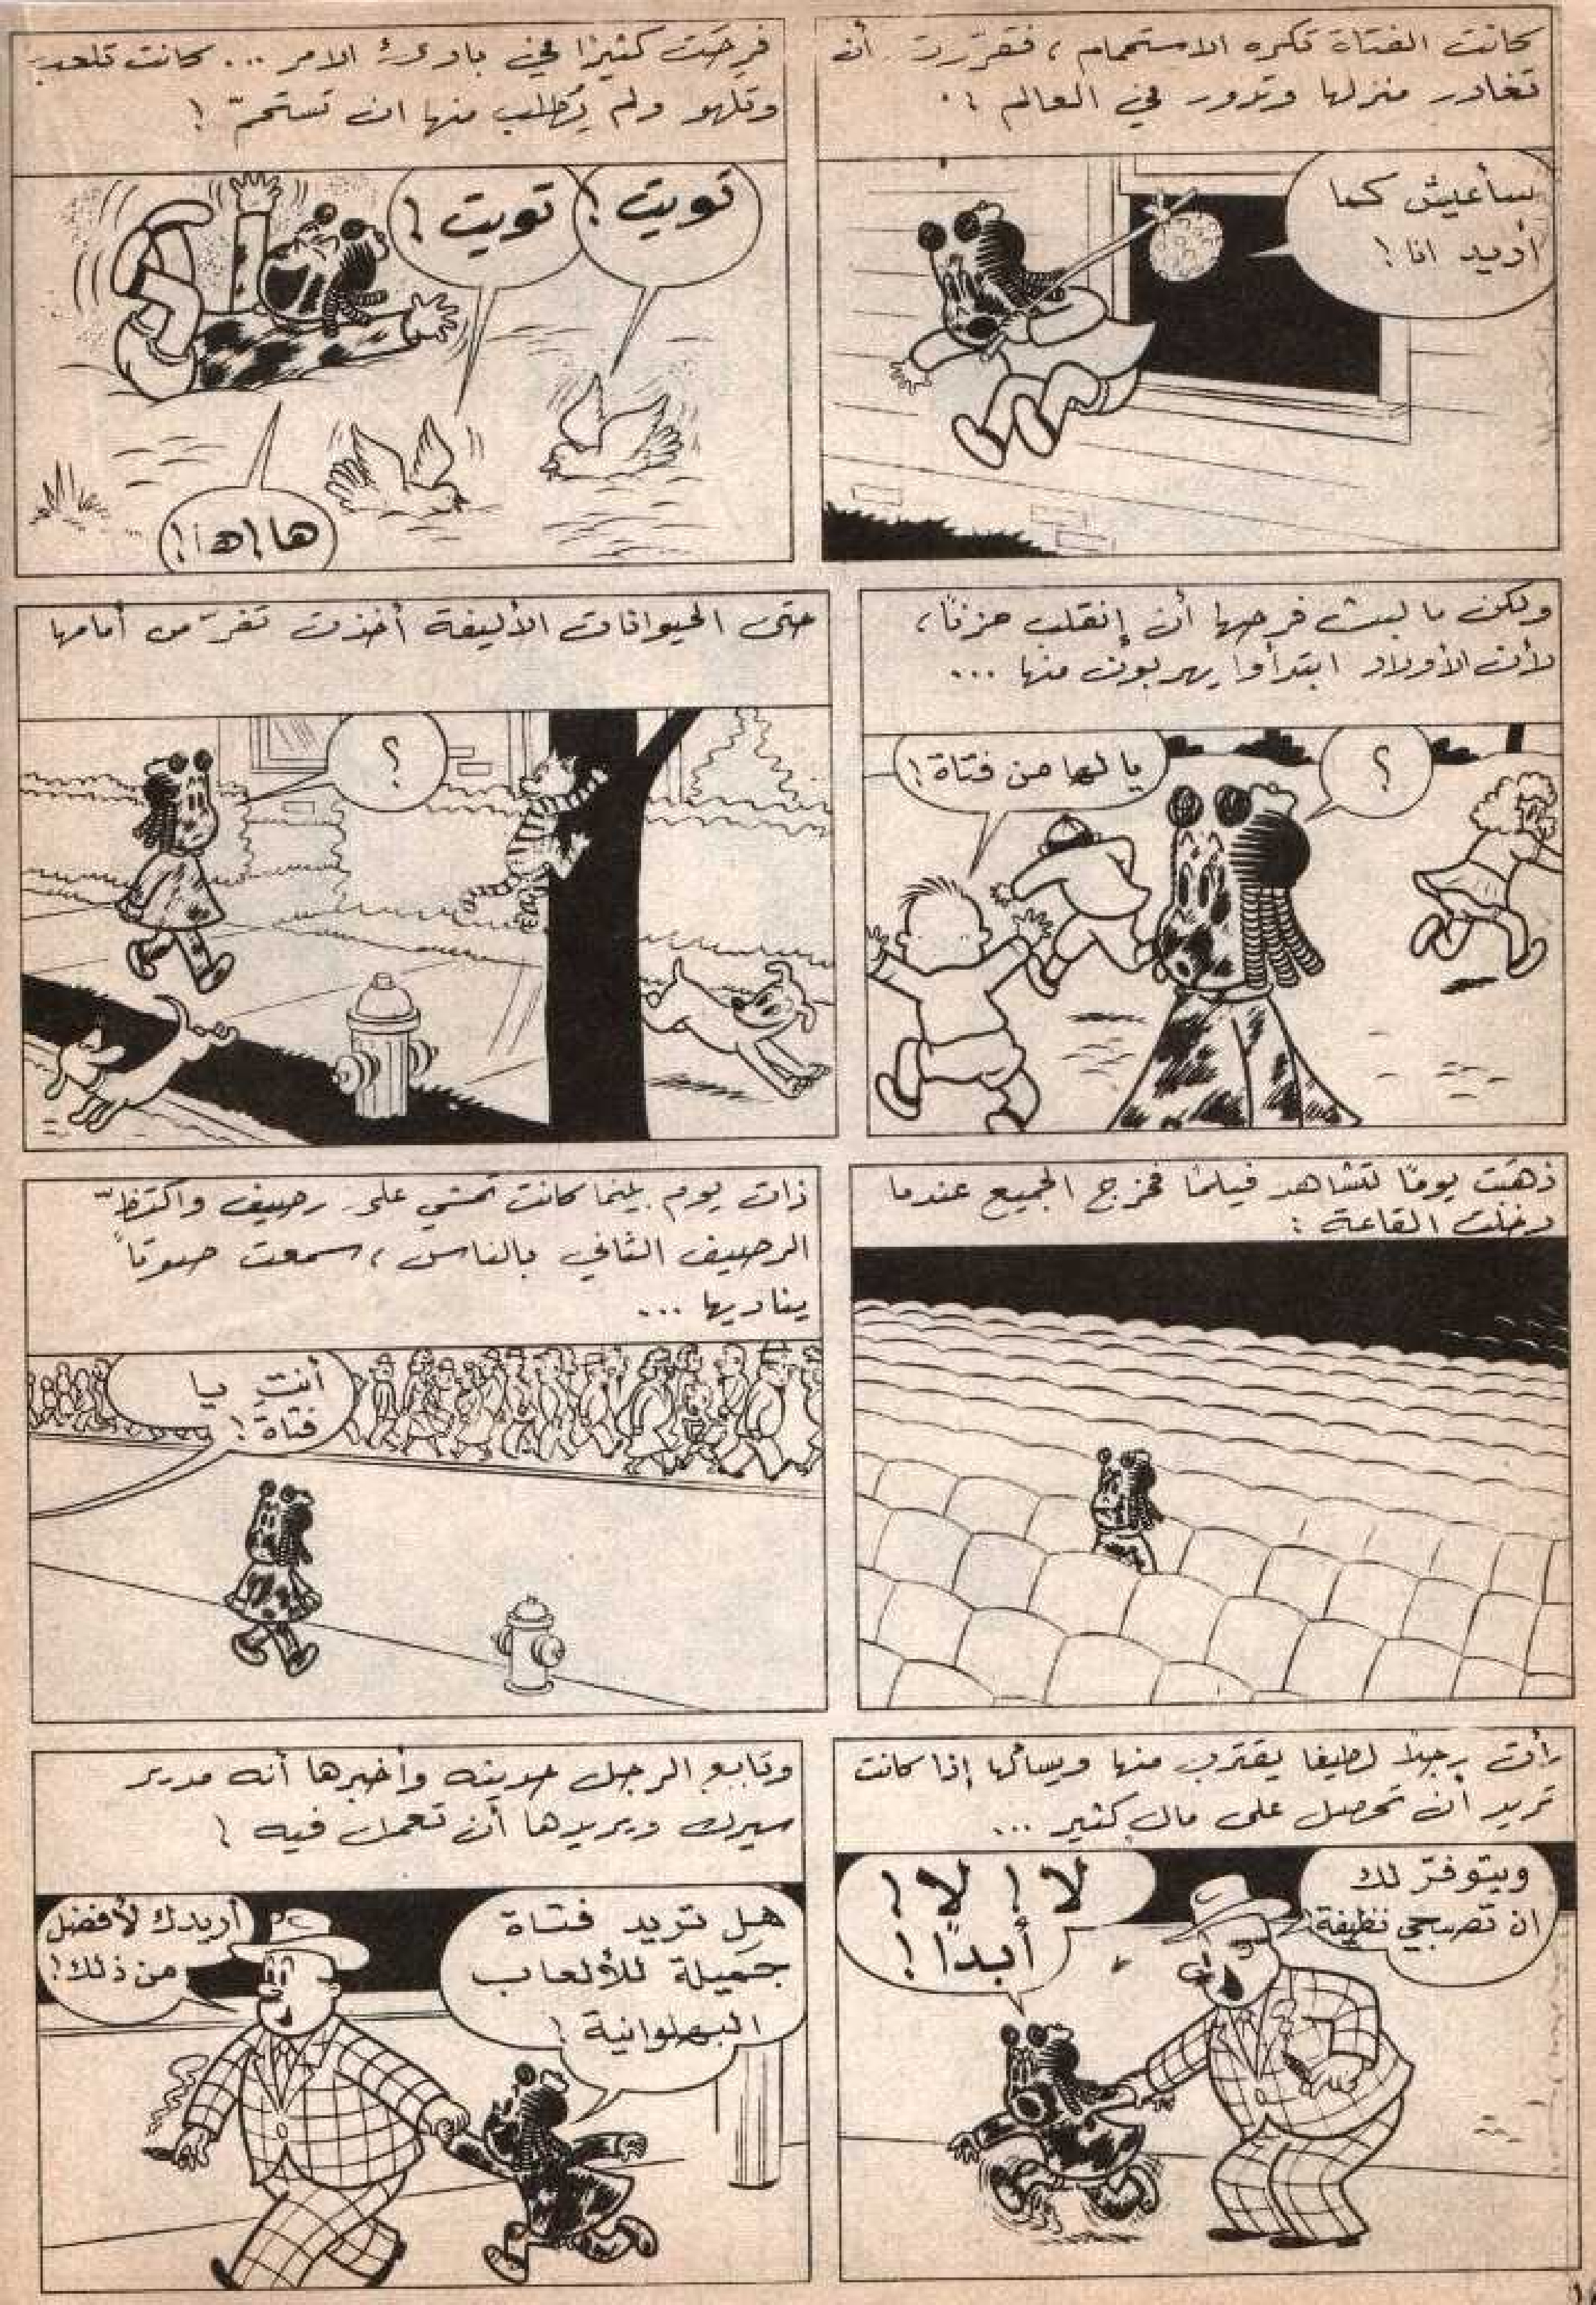 كانت الفتاة تكره الاستحمام، فقرّرت أن
تغادر منزلها وتدور في العالم!
سأعيش كما
أريد انا!
فرحَت كثيرًا في بادىء الامر ... كانت تلعب
وتلهو ولم يُطلب منها ان تستحمّ!
تويت!
تويت!
ها!ها!
ولكن ما لبث فرحها أن إنقلب حزنًا،
لأن الأولاد ابتدأوا يهربون منها ...
؟
يا لها من فتاة!
حتى الحيوانات الأليفة أخذت تفرّ من أمامها
؟
ذهبَت يومًا لتشاهد فيلمًا فخرج الجميع عندما
دخلت القاعة:
ذات يوم بينما كانت تمشي على رصيف واكتظّ
الرصيف الثاني بالناس، سمعت صوتًا
يناديها ...
أنتِ يا
فتاة!
رأت رجلاً لطيفا يقترب منها ويسألها إذا كانت
تريد أن تحصل على مال كثير ...
ويتوفّر لك
ان تصبحي نظيفة!
لا! لا!
أبدًا!
وتابع الرجل حديثه وأخبرها أنه مدير
سيرك ويريدها أن تعمل فيه!
هل تريد فتاة
جميلة للألعاب
البهلوانية!
أريدك لأفضل
من ذلك!